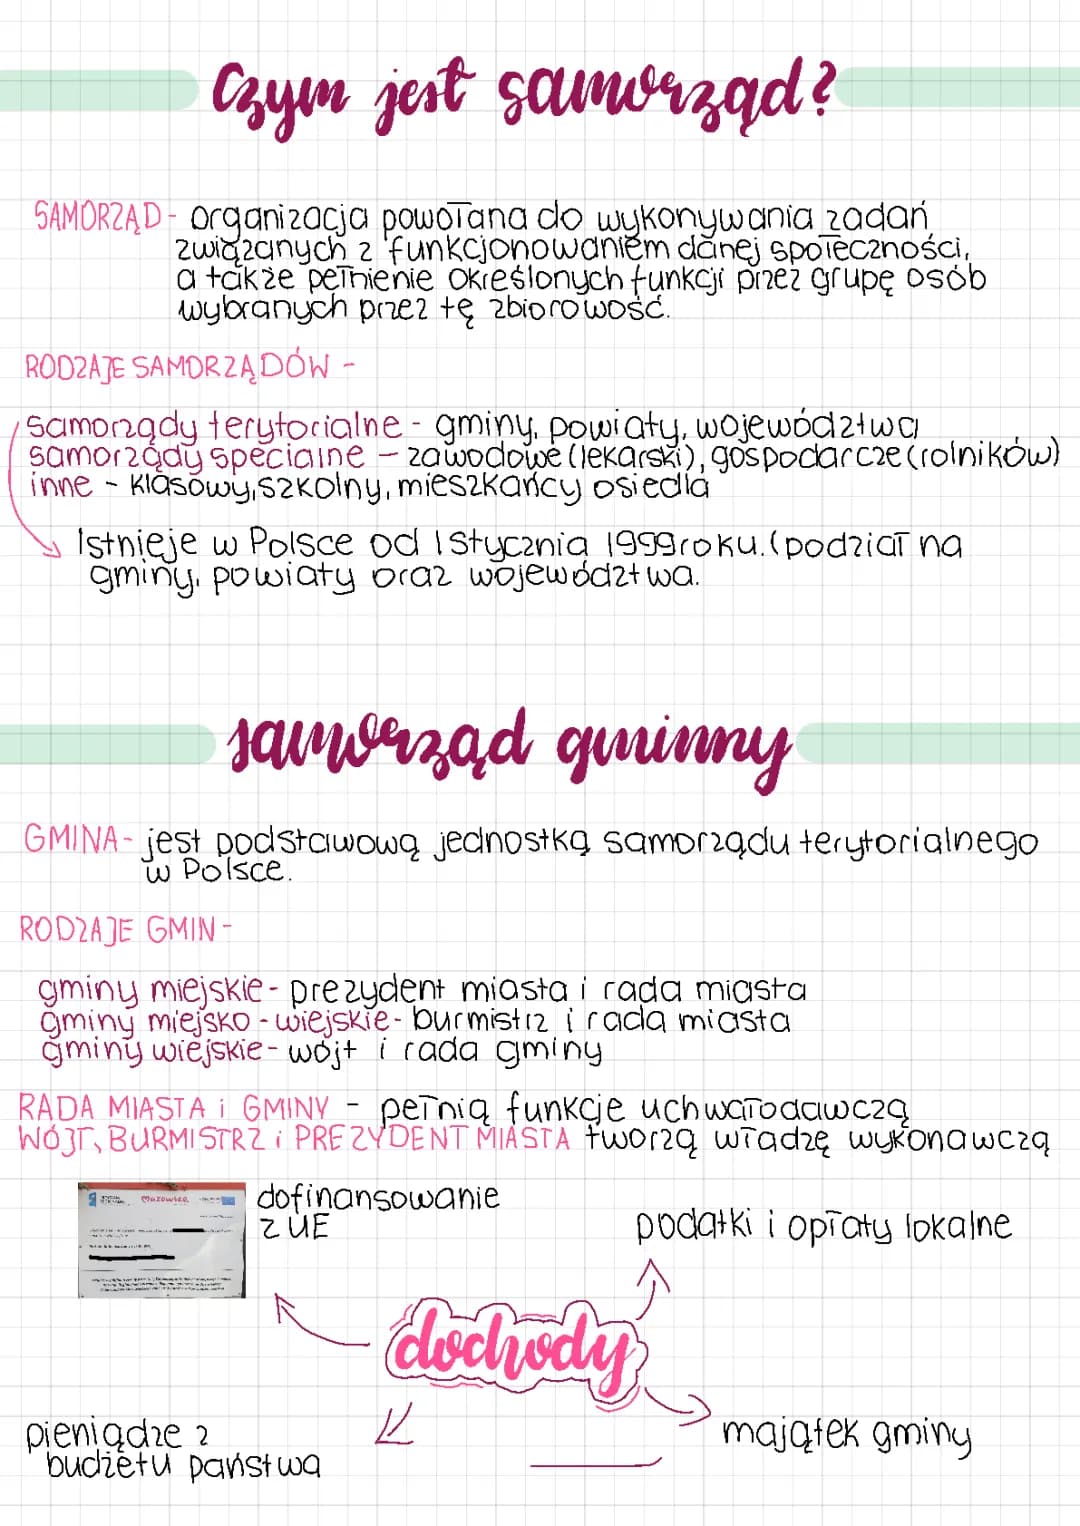 Czym jest samorząd?
SAMORZĄD - organizacja powołana do wykonywania zadań
związanych z funkcjonowaniem danej społeczności,
a także pełnienie określonych funkcji przez grupę osób
wybranych przez tę zbiorowość.
RODZAJE SAMORZĄDÓW -
samorządy terytorialne - gminy, powiaty, województwa
samorządy specjalne - zawodowe (lekarski), gospodarcze (rolników)
inne - klasowy, szkolny, mieszkańcy osiedla
Istnieje w Polsce od 1 stycznia 1999 roku. (podział na
gminy, powiaty oraz województwa.
samorząd gminny
GMINA - jest podstawową jednostką samorządu terytorialnego
w Polsce.
RODZAJE GMIN -
gminy miejskie - prezydent miasta i rada miasta
gminy miejsko - wiejskie - burmistrz i rada miasta
gminy wiejskie - wójt i rada gminy
RADA MIASTA i GMINY - pełnią funkcje uchwałodawczą
WÓJT, BURMISTRZ i PREZYDENT MIASTA tworzą władzę wykonawczą
Mazowsze
dofinansowanie
z UE
podatki i opłaty lokalne
dochody
pieniądze z
budżetu państwa
majątek gminy